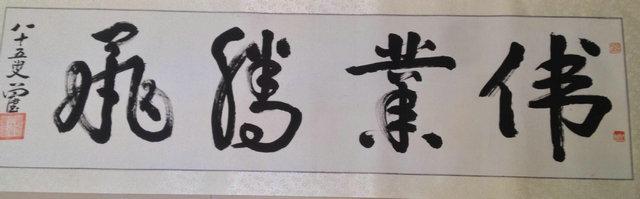 伟業騰飛
八十五叟